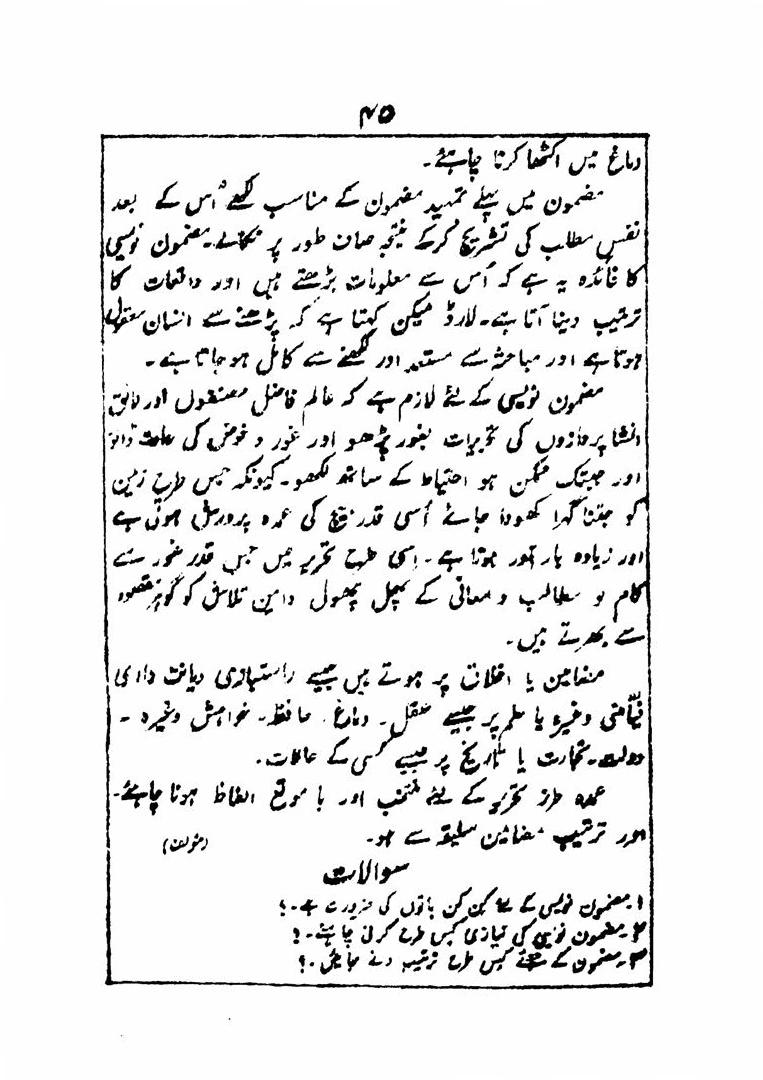 ۴۵
دماغ میں اکٹھا کرنا چاہئے۔
مضمون میں پہلے تمہید مضمون کے مناسب لکھے اُس کے بعد
نفس مطلب کی تشریح کرکے نتیجہ صاف طور پر نکالے۔ مضمون نویسی
کا فائدہ یہ ہے کہ اُس سے معلومات بڑھتے ہیں اور واقعات کا
ترتیب دینا آتا ہے۔ لارڈ بیکن کہتا ہے کہ پڑھنے سے انسان معقول
ہوتا ہے اور مباحثہ سے مستعد اور لکھنے سے کامل ہو جاتا ہے۔
مضمون نویسی کے لئے لازم ہے کہ عالم فاضل مصنفوں اور لائق
انشا پردازوں کی تحریرات بغور پڑھو اور غور و خوض کی عادت ڈالو
اور جہتک ممکن ہو احتیاط کے ساتھ لکھو۔ کیونکہ جس طرح زمین
کو جتنا گہرا کھودا جائے اُسی قدر بیج کی عمدہ پرورش ہوتی ہے
اور زیادہ بار آور ہوتا ہے۔ اسی طرح تحریر میں جس قدر غور سے
کام لو مطالب و معانی کے پھل پھول دامن تلاش کو گوہر مقصود
سے بھرتے ہیں۔
مضامین یا اخلاق پر ہوتے ہیں جیسے راستبازی دیانت داری
فیاضی وغیرہ یا علم پر جیسے عقل۔ دماغ۔ حافظہ۔ خواہش وغیرہ۔
دولت۔ تجارت یا تاریخ پر جیسے کسی کے حالات۔
عمدہ طرز تحریر کے لئے منتخب اور با موقع الفاظ ہونا چاہئے۔
اور ترتیب مضامین سلیقہ سے ہو۔ (مؤلف)
سوالات
۱۔ مضمون نویسی کے لئے کن کن باتوں کی ضرورت ہے۔؟
۲۔ مضمون نویسی کی تیاری کس طرح کرنی چاہئے۔؟
۳۔ مضمون کے حصے کس طرح ترتیب دئے جائیں۔؟